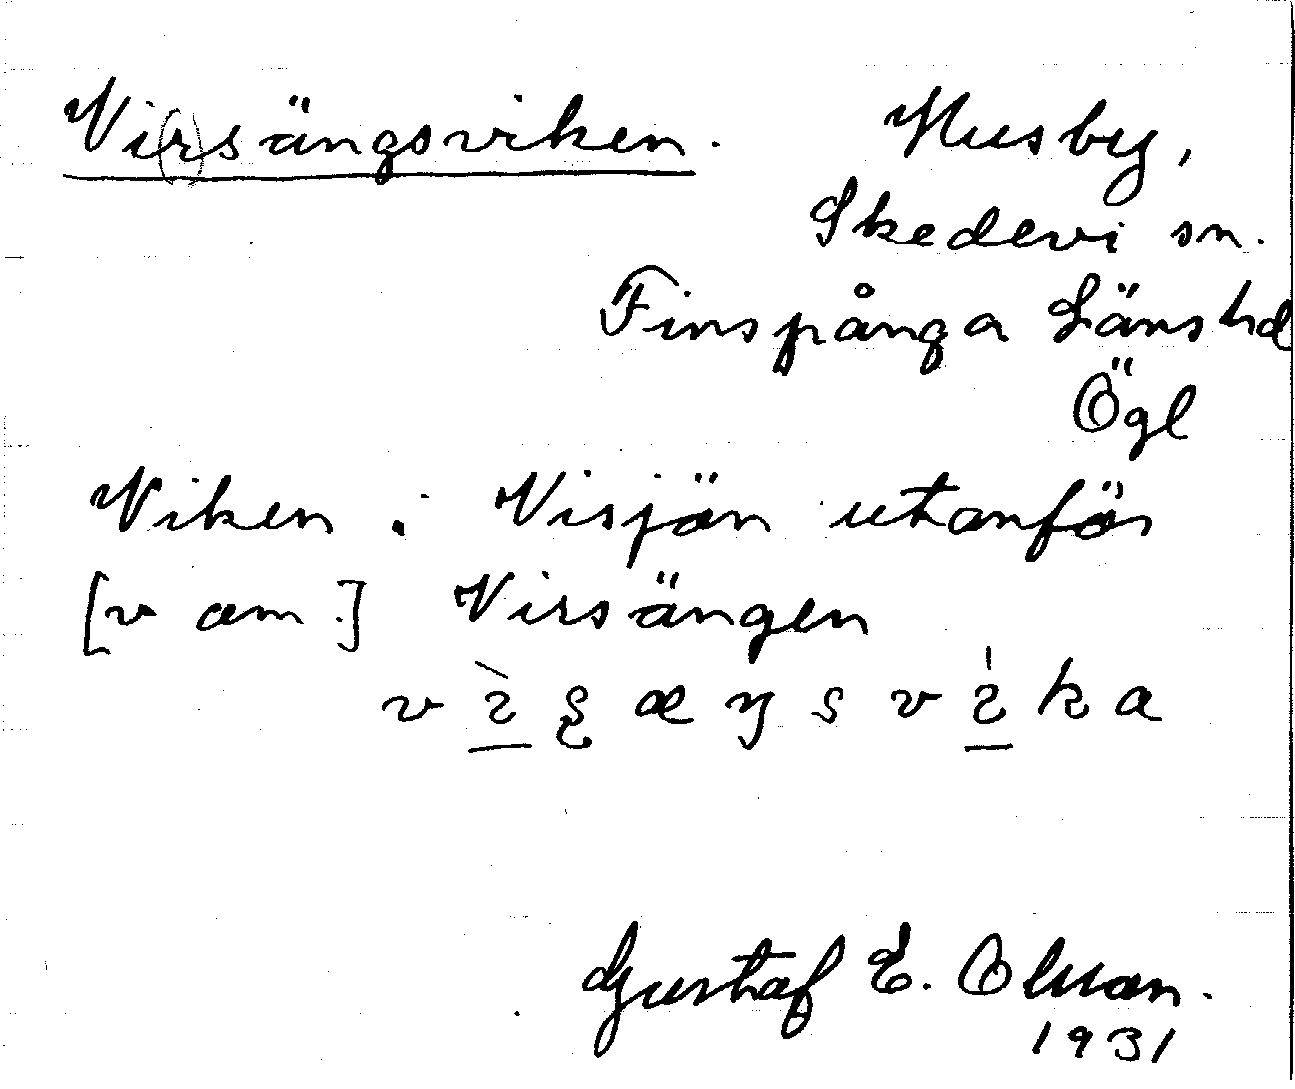 Vi(r)sängsviken. Husby,
Skedevi sn.
Finspånga Länshd
Ögl
Viken i Visjön utanför
[v om] Virsängen
Gustaf E. Olsson.
1931